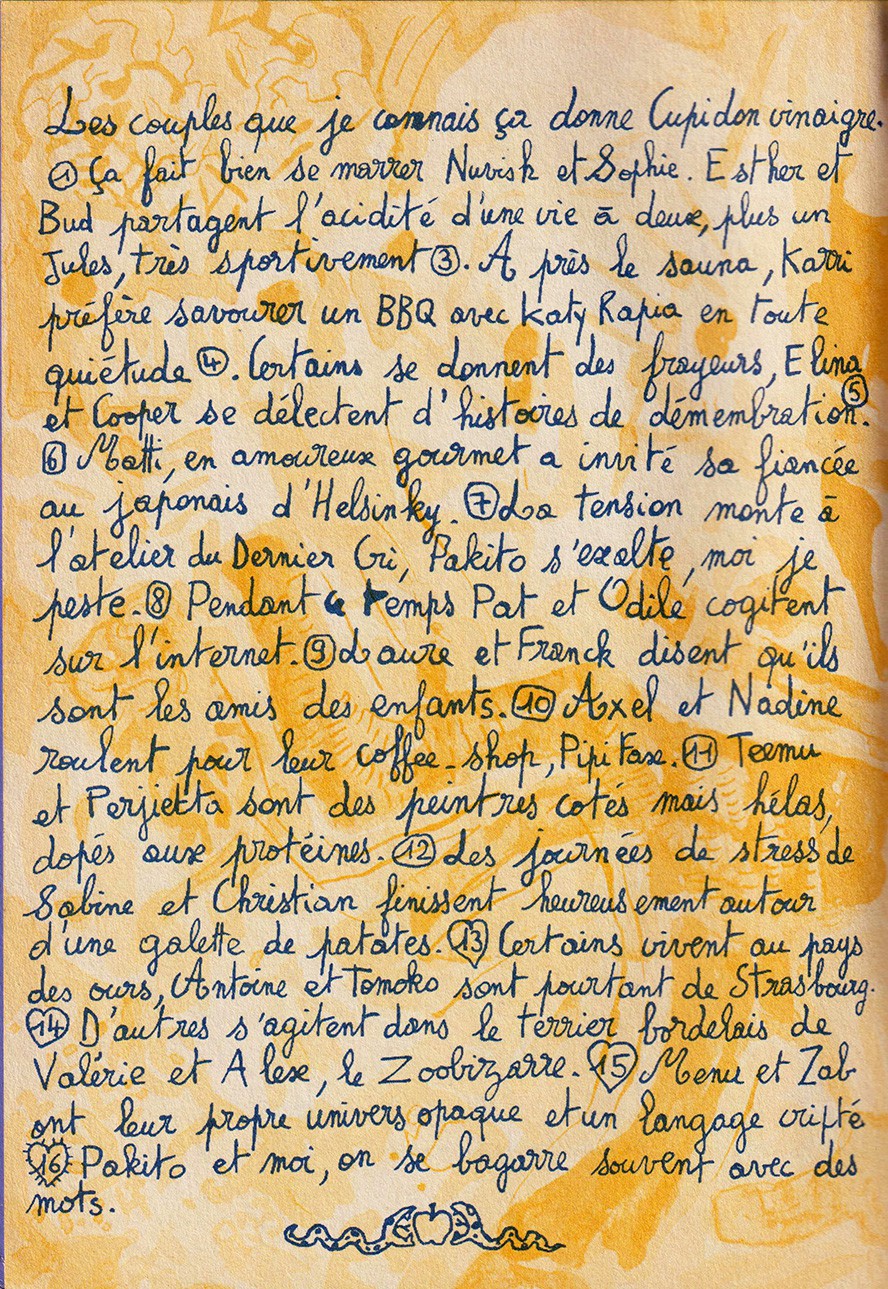 Les couples que je connais ça donne Cupidon vinaigre.
① Ça fait bien se marrer Nuvish et Sophie. Esther et
Bud partagent l'acidité d'une vie à deux, plus un
Jules, très sportivement ③. Après le sauna, Karri
préfère savourer un BBQ avec Katy Rapia en toute
quiétude ④. Certains se donnent des frayeurs, Elina
et Cooper se délectent d'histoires de démembration. ⑤
⑥ Matti, en amoureux gourmet a invité sa fiancée
au japonais d'Helsinky. ⑦ La tension monte à
l'atelier du Dernier Cri, Pakito s'exalte, moi je
peste. ⑧ Pendant ce temps Pat et Odile cogitent
sur l'internet. ⑨ Laure et Franck disent qu'ils
sont les amis des enfants. ⑩ Axel et Nadine
roulent pour leur coffee-shop, Pipi Faxe. ⑪ Teemu
et Perjietta sont des peintres cotés mais hélas,
dopés aux protéines. ⑫ Les journées de stress de
Sabine et Christian finissent heureusement autour
d'une galette de patates. ⑬ Certains vivent au pays
des ours, Antoine et Tomoko sont pourtant de Strasbourg.
⑭ D'autres s'agitent dans le terrier bordelais de
Valérie et Alex, le Zoobizarre. ⑮ Menu et Zab
ont leur propre univers opaque et un langage cripté
⑯ Pakito et moi, on se bagarre souvent avec des
mots.